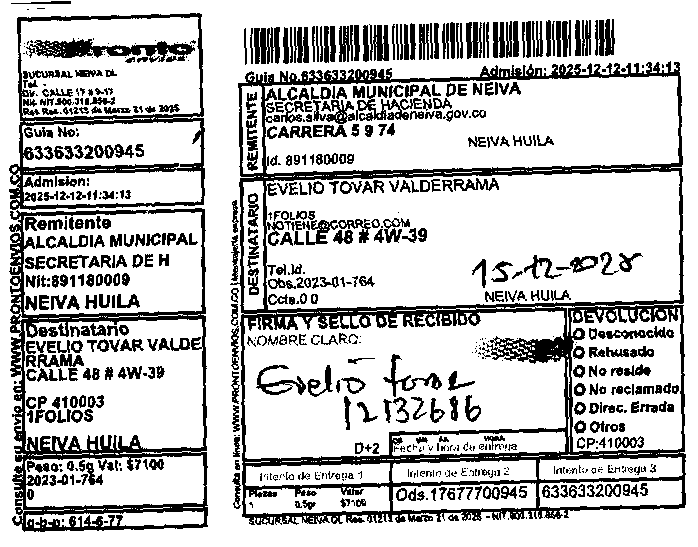 Pronto
envios
SUCURSAL NEIVA DL
Tel.
Dir. CALLE 17 # 9-17
Nit. NIT.900.318.856-2
Res Res. 01213 de Marzo 21 de 2025
Guia No:
633633200945
Admision:
2025-12-12-11:34:13
Remitente
ALCALDIA MUNICIPAL
SECRETARIA DE H
Nit:891180009
NEIVA HUILA
Destinatario
EVELIO TOVAR VALDE
RRAMA
CALLE 48 # 4W-39
CP 410003
1FOLIOS
NEIVA HUILA
Peso: 0.5g Val: $7100
2023-01-764
0
g-b-p: 614-6-77
Consulte su envio en: WWW.PRONTOENVIOS.COM.CO
Guia No.633633200945 Admisión: 2025-12-12-11:34:13
REMITENTE
ALCALDIA MUNICIPAL DE NEIVA
SECRETARIA DE HACIENDA
carlos.silva@alcaldiadeneiva.gov.co
CARRERA 5 9 74
NEIVA HUILA
Id. 891180009
DESTINATARIO
EVELIO TOVAR VALDERRAMA
1FOLIOS
NOTIENE@CORREO.COM
CALLE 48 # 4W-39
Tel.Id.
Obs.2023-01-764
Ccts.0 0
15-12-2025
NEIVA HUILA
FIRMA Y SELLO DE RECIBIDO
NOMBRE CLARO:
Evelio Tovar
12132686
D+2
Fecha y hora de entrega
DEVOLUCION
Desconocido
Rehusado
No reside
No reclamado
Direc. Errada
Otros
CP:410003
Intento de Entrega 1 Intento de Entrega 2 Intento de Entrega 3
Piezas Peso Valor
1 0.5gr $7100
Ods.17677700945 633633200945
SUCURSAL NEIVA DL Res. 01213 de Marzo 21 de 2025 - NIT.900.318.856-2
Consulta en linea: WWW.PRONTOENVIOS.COM.CO | Mensajeria expresa